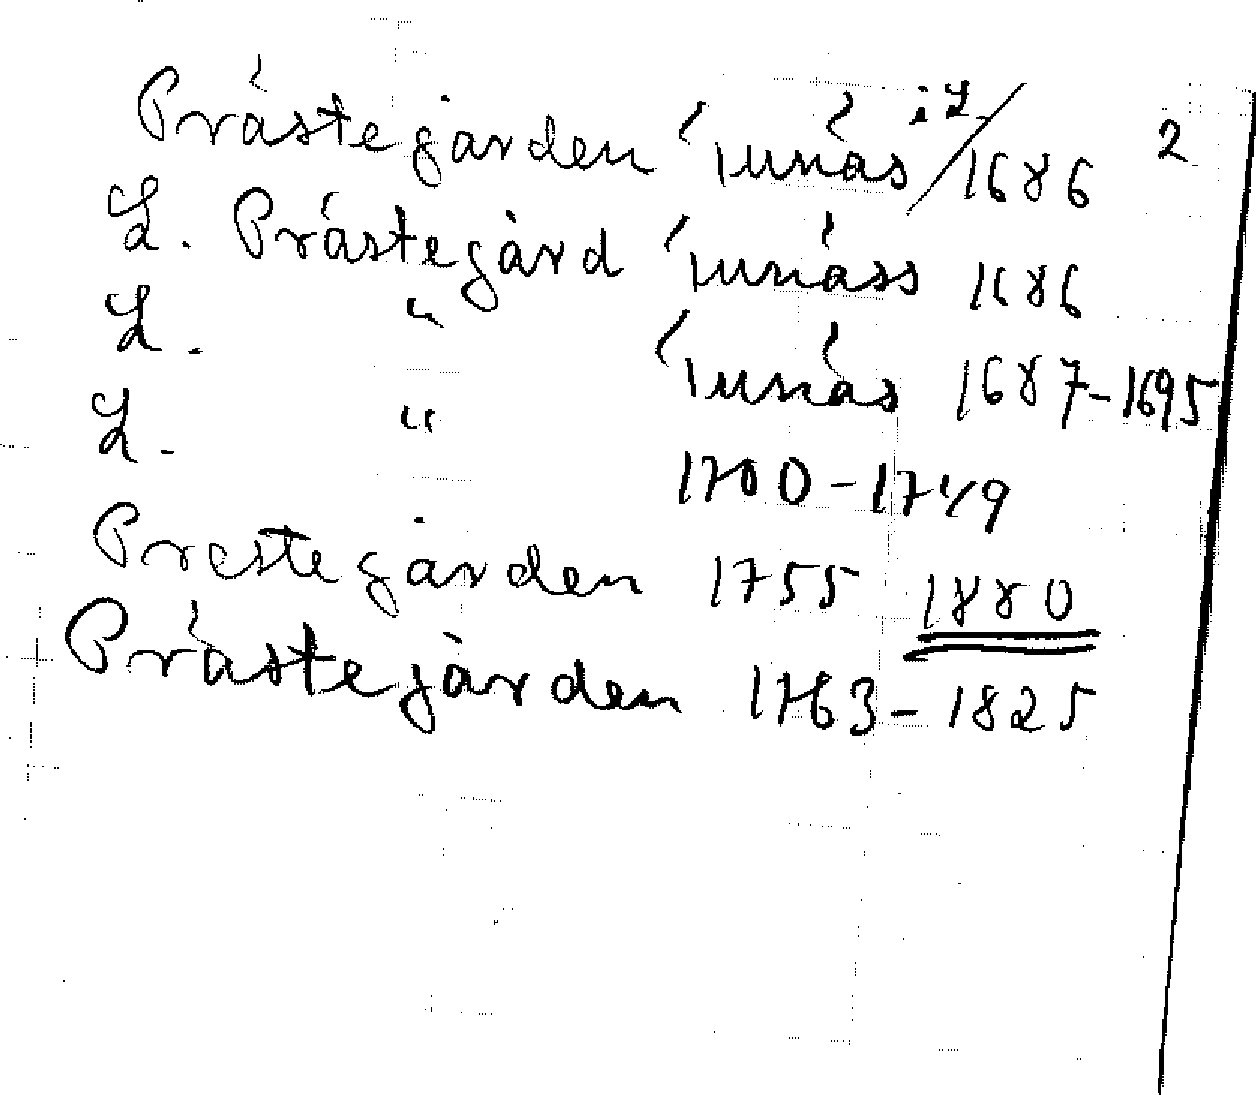 Prästegården Tunäs i L/1686 2
L. Prästegård Tunäss 1686
L. " Tunäs 1687-1695
L. " 1700-1749
Prestegården 1755 1880
Prästegården 1763-1825